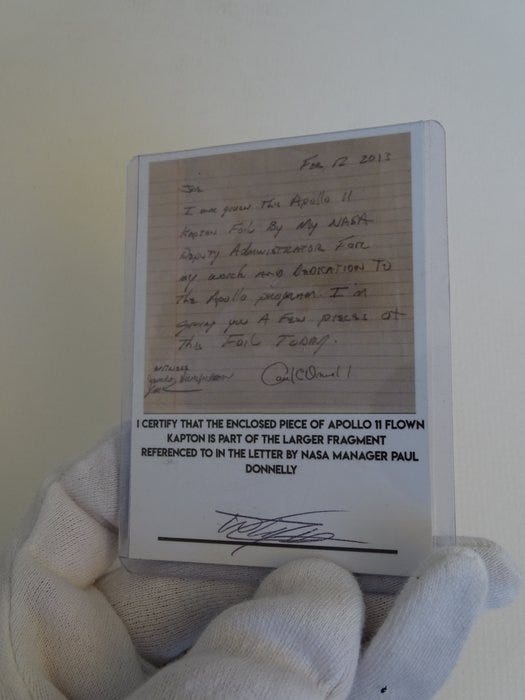 Feb 12 2013
Joe
I was given this Apollo 11
Kapton Foil By My NASA
Deputy Administrator For
my work AND DEDICATION TO
The Apollo program I'm
giving you A Few pieces of
This FOIL TODAY.
WITNESS
I CERTIFY THAT THE ENCLOSED PIECE OF APOLLO 11 FLOWN
KAPTON IS PART OF THE LARGER FRAGMENT
REFERENCED TO IN THE LETTER BY NASA MANAGER PAUL
DONNELLY